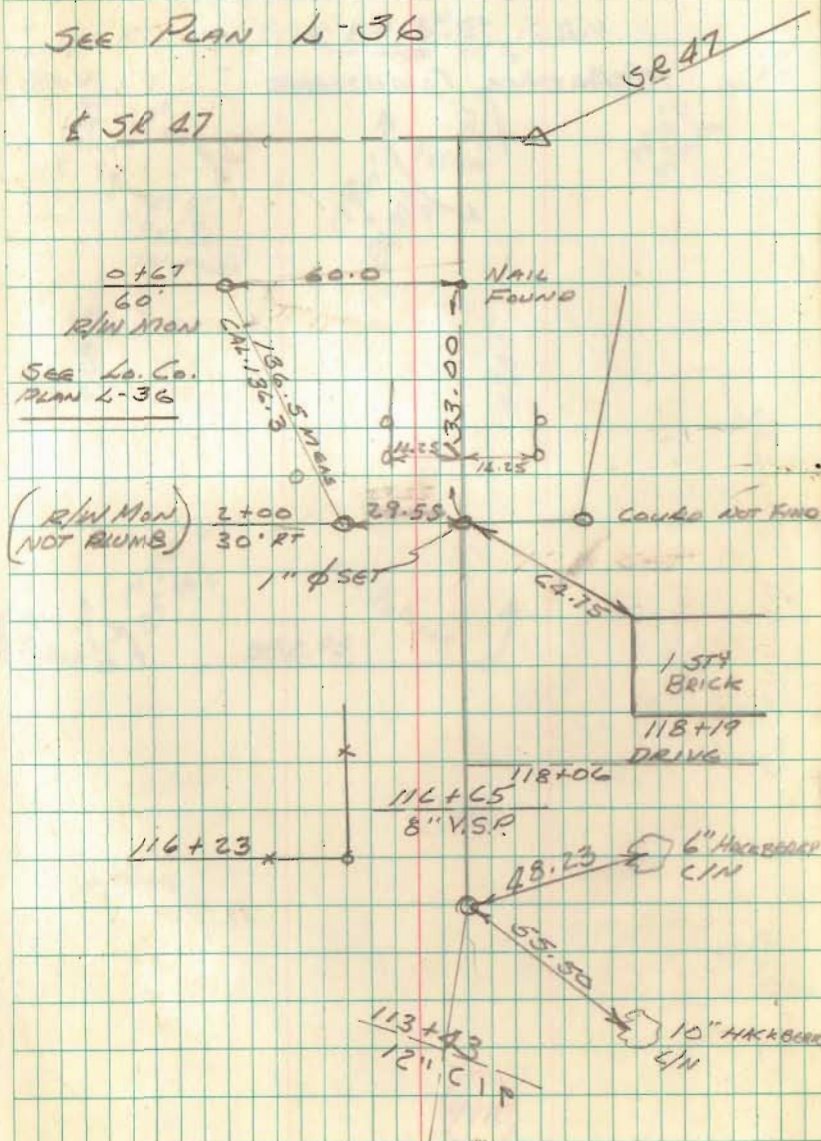 SEE PLAN L-36
SR 47
℄ SR 47
0+67
60'
R/W MON
60.0
NAIL
FOUND
SEE Lo. Co.
PLAN L-36
136.5 MEAS
CAL. 136.3
133.00
14.25
14.25
(R/W MON
NOT PLUMB)
2+00
30' RT
29.55
COULD NOT FIND
1" φ SET
64.75
1 STY
BRICK
118+19
DRIVE
118+06
116+65
8" V.S.P.
116+23
48.23
6" HACKBERRY
C/N
55.50
113+43
12" C I P
10" HACKBERR
C/N